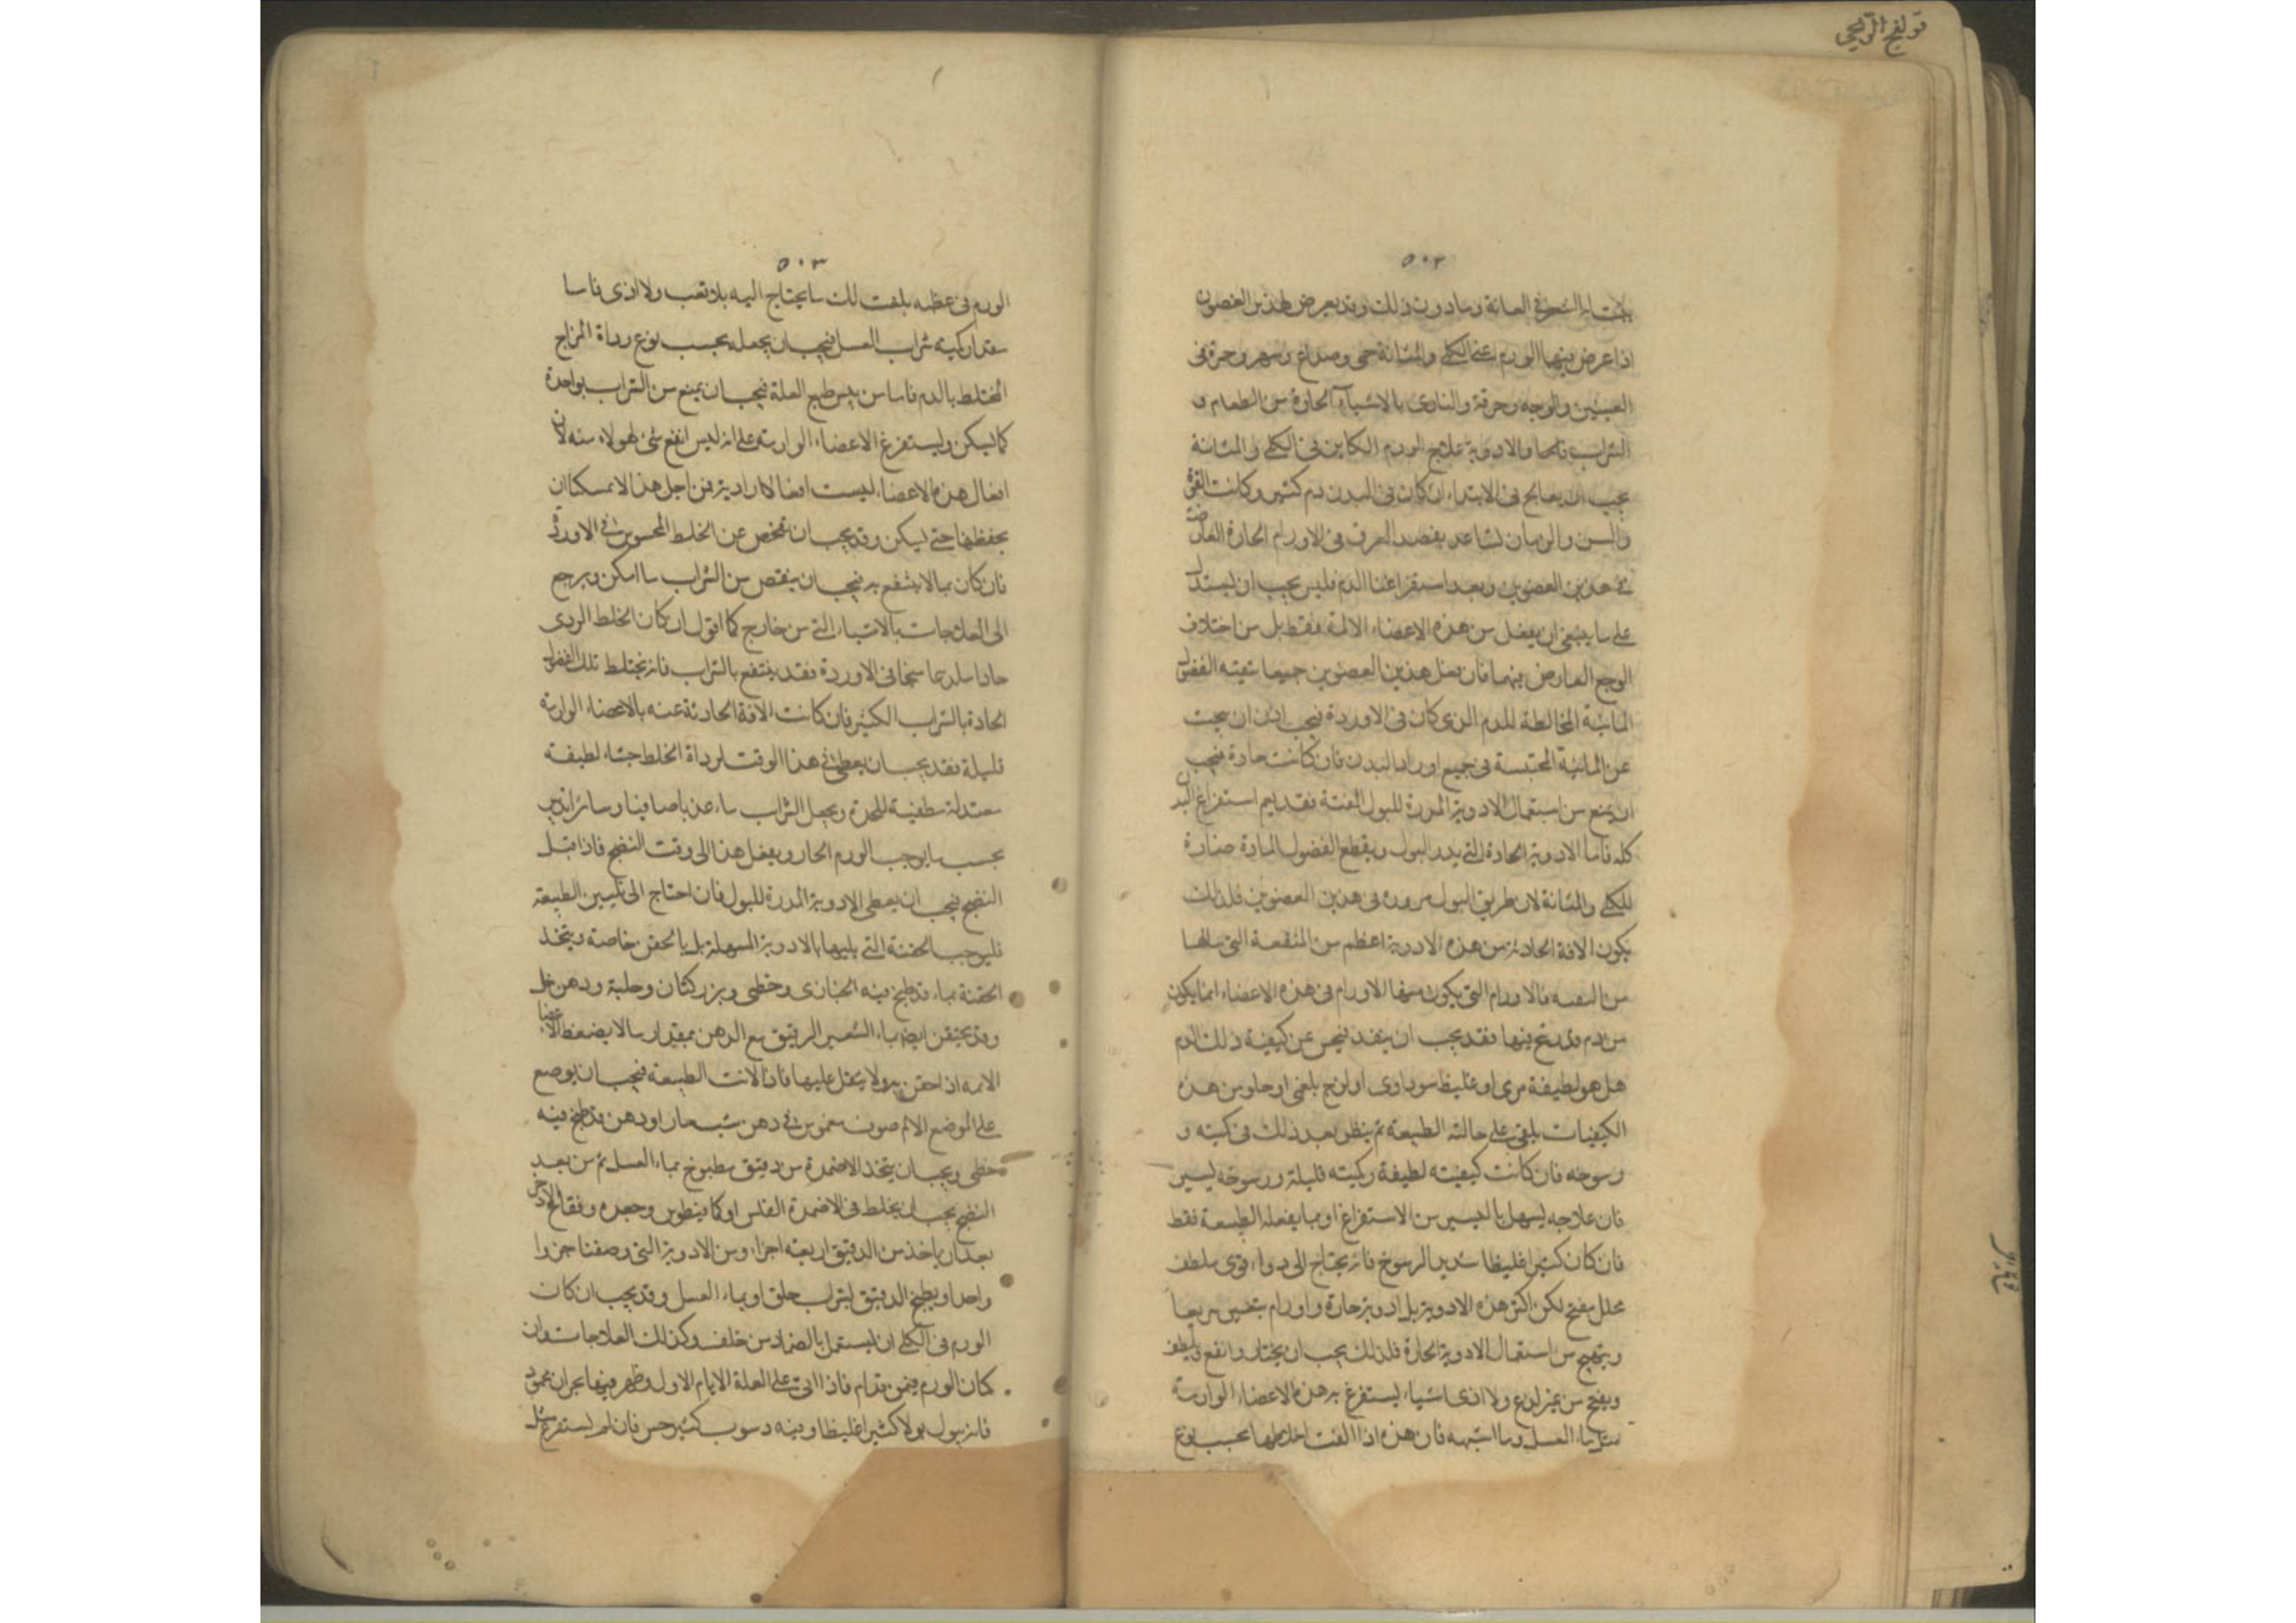 قولنج الريحى
٥٠٢
الشعر فى العانة وما دون ذلك وقد يعرض لهذين العضوين
اذا عرض فيهما الورم اعنى الكلى والمثانة حمى وصداع وسهر وحمرة فى
العينين والوجه وحرقة والتاذى بالاشياء الحارة من الطعام و
الشراب علاج الورم الكاين فى الكلى والمثانة
يجب ان يعالج فى الابتداء ان كان فى البدن دم كثير وكانت القوة
والسن والزمان تساعد بفصد العرق فى الاورام الحارة العارضة
فى هذين العضوين وبعد استفراغنا الدم فليس يجب ان يستدل
على ما ينبغى ان يفعل من هذه الاعضاء الالمة فقط بل من اختلاف
الوجع العارض فيهما فان فعل هذين العضوين جميعا تنقية الفضول
المائية المخالطة للدم الذى كان فى الاوردة فيجب اذن ان يبحث
عن المائية المحتبسة فى جميع اوراد البدن فان كانت حادة فيجب
ان يمنع من استعمال الادوية المدرة للبول استفراغ البدن
كله فاما الادوية الحادة التى يدر البول ويقطع الفضول المادة ضارة
للكلى والمثانة لان طريق البول مروره فى هذين العضوين فلذلك
يكون الافة الحادثة من هذه الادوية اعظم من المنفعة التى ينالها
من فالاورام التى يكون منها الاورام فى هذه الاعضاء انما يكون
من دم قد رسخ فيها فقد يجب ان عن كيفية ذلك الدم
هل هو لطيفة مرى او غليظ سوداوى او لزج بلغمى او خلو من هذه
الكيفيات بلقى على حالته الطبيعة ثم ينظر بعد ذلك فى كميته و
رسوخه فان كانت كيفيته لطيفة وكميته قليلة ورسوخه يسير
فان علاجه يسهل باليسير من الاستفراغ او بما يفعله الطبيعة فقط
فان كان كثيرا غليظا شديد الرسوخ فانه يحتاج الى دواء قوى ملطف
محلل مفتح لكن اكثر هذه الادوية بل ادوية حارة واورام سريعا
ويتهيج من استعمال الادوية الحارة فلذلك يجب ان يختار
ويفتح من غير لذع ولا اذى اشياء يستفرغ به هذه الاعضاء الوارمة
مثل ماء العسل وما اشبهه فان هذه اذا الفت اخلاطها بحسب نوع
٥٠٣
الورم فى عظمه بلغت لك ما يحتاج اليه بلا تعب ولا اذى فاما
مقدار كمية شراب العسل فيجب ان يجعله بحسب نوع رداة المزاج
المختلط بالدم فاما من العلة فيجب ان يمنع من الشراب بواحدة
كما يسكن ويستفرغ الاعضاء الوارمة على انه ليس انفع شئ لهولاء منه لان
افعال هذه الاعضاء ليست افعالا ارادية فمن اجل هذا لا يمسكا ان
يحفظها حتى يسكن وقد يجب ان تفحص عن الخلط المحبوس فى الاوردة
فان كان مما لا ينتفع به فيجب ان ينقص من الشراب ما امكن ويرجع
الى العلاجات بالاشياء التى من خارج كما اقول ان كان الخلط الردى
حادا فى الاوردة فقد ينتفع بالشراب فانه يختلط تلك الفضول
الحادة بالشراب الكثير فان كانت الافة الحادثة عنه بالاعضاء الوارمة
قليلة فقد يجب ان يعطى فى هذا الوقت لرداة الخلط لطيفة
معتدلة مطفية للحدة ويجعل الشراب ماء عذبا صافيا وسائر التدبير
بحسب ما يوجب الورم الحار ويفعل هذا الى وقت النضج فاذا قبل
النضج فيجب ان يعطى الادوية المدرة للبول فان احتاج الى تليين الطبيعة
فليوجب الحقنة التى يليها بالادوية المسهلة بل بالحقن خاصة ويتخذ
الحقنة بماء قد طبخ فيه الخبازى وخطمى وبزر كتان وحلبة ودهن خل
وقد يحتقن ايضا بماء الشعير الرقيق مع الدهن بمقدار ما لا يضغط الاعضاء
الالمة اذا احتقن به ولا يثقل عليها فاذا لانت الطبيعة فيجب ان يوضع
على الموضع الالم صوف مغموس فى دهن او دهن قد طبخ فيه
خطمى ويجب ان يتخذ الاضمدة من دقيق مطبوخ بماء العسل ثم من بعد
النضج يجب ان يخلط فى الاضمدة او كمافيطوس وجعدة وفقاح الاذخر
بعد ان ياخذ من الدقيق اربعة اجزاء ومن الادوية التى وصفنا جزوا
واحدا ويطبخ الدقيق بشراب حلو او بماء العسل وقد يجب ان كان
الورم فى الكلى ان يستعمل بالضماد من خلف وكذلك العلاجات وان
كان الورم فمن قدام فاذا اتى على العلة الايام الاول وظهر فيها بحران محمود
فانه يبول بولا كثيرا غليظا وفيه رسوب كثير حسن فان لم يستفرغ مثل